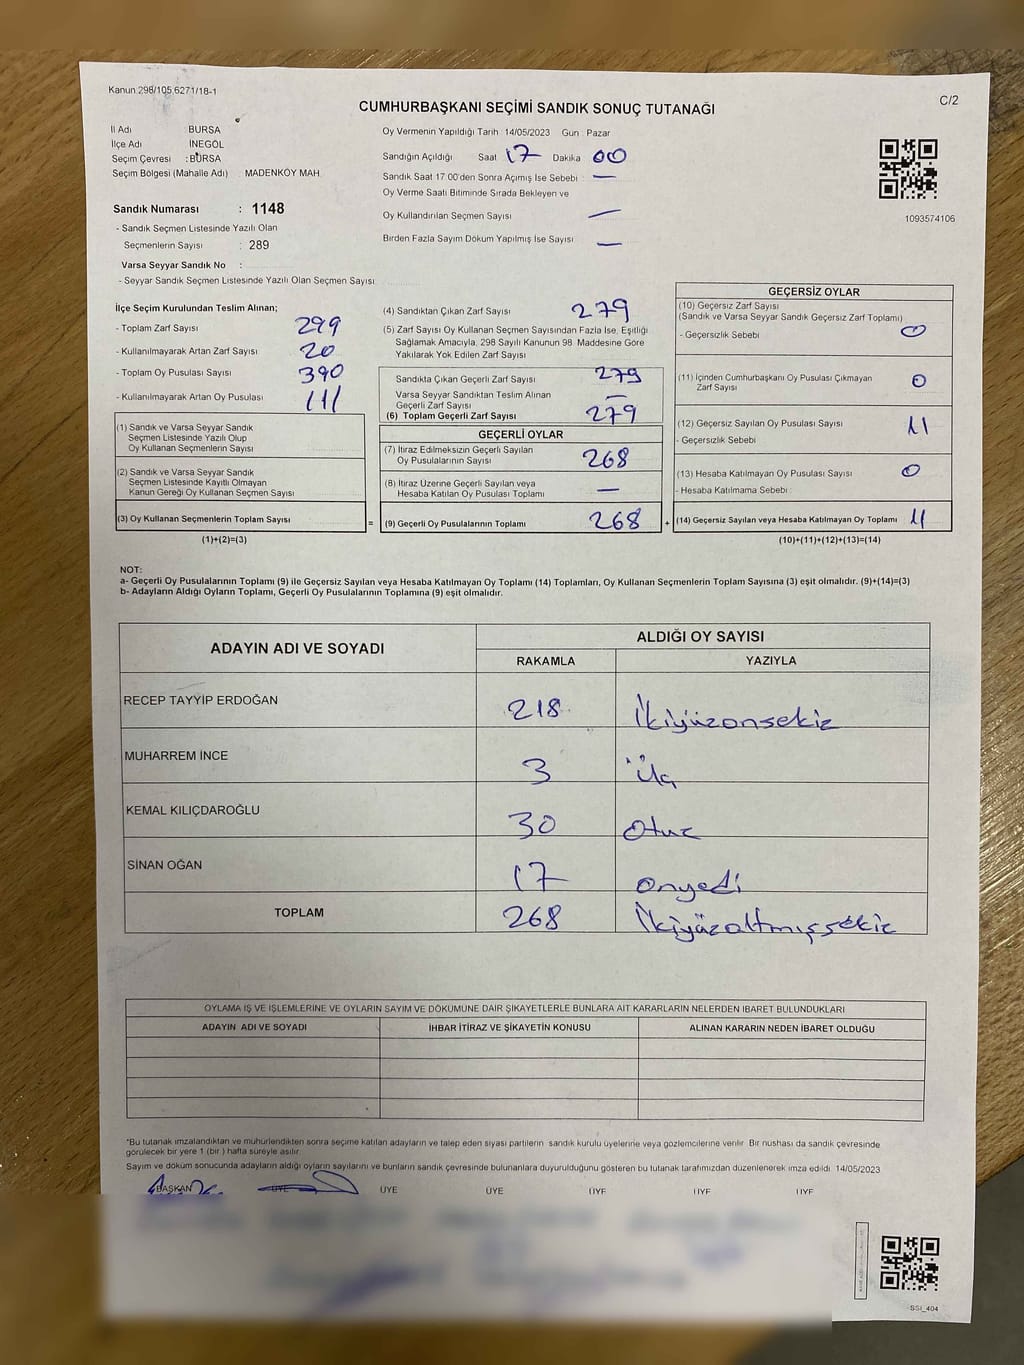 Kanun 298/105,6271/18-1
C/2
CUMHURBAŞKANI SEÇİMİ SANDIK SONUÇ TUTANAĞI
İl Adı BURSA
İlçe Adı İNEGÖL
Seçim Çevresi : BURSA
Seçim Bölgesi (Mahalle Adı) : MADENKÖY MAH.
Sandık Numarası : 1148
- Sandık Seçmen Listesinde Yazılı Olan
Seçmenlerin Sayısı : 289
Varsa Seyyar Sandık No :
- Seyyar Sandık Seçmen Listesinde Yazılı Olan Seçmen Sayısı
Oy Vermenin Yapıldığı Tarih 14/05/2023 Gün : Pazar
Sandığın Açıldığı Saat 17 Dakika 00
Sandık Saat 17:00'den Sonra Açımış İse Sebebi : —
Oy Verme Saati Bitiminde Sırada Bekleyen ve
Oy Kullandırılan Seçmen Sayısı —
Birden Fazla Sayım Döküm Yapılmış İse Sayısı —
1093574106
İlçe Seçim Kurulundan Teslim Alınan;
- Toplam Zarf Sayısı 299
- Kullanılmayarak Artan Zarf Sayısı 20
- Toplam Oy Pusulası Sayısı 390
- Kullanılmayarak Artan Oy Pusulası 111
(1) Sandık ve Varsa Seyyar Sandık
Seçmen Listesinde Yazılı Olup
Oy Kullanan Seçmenlerin Sayısı
(2) Sandık ve Varsa Seyyar Sandık
Seçmen Listesinde Kayıtlı Olmayan
Kanun Gereği Oy Kullanan Seçmen Sayısı
(3) Oy Kullanan Seçmenlerin Toplam Sayısı
(1)+(2)=(3)
(4) Sandıktan Çıkan Zarf Sayısı 279
(5) Zarf Sayısı Oy Kullanan Seçmen Sayısından Fazla İse, Eşitliği
Sağlamak Amacıyla, 298 Sayılı Kanunun 98. Maddesine Göre
Yakılarak Yok Edilen Zarf Sayısı
Sandıkta Çıkan Geçerli Zarf Sayısı 279
Varsa Seyyar Sandıktan Teslim Alınan
Geçerli Zarf Sayısı —
(6) Toplam Geçerli Zarf Sayısı 279
GEÇERLİ OYLAR
(7) İtiraz Edilmeksizin Geçerli Sayılan
Oy Pusulalarının Sayısı 268
(8) İtiraz Üzerine Geçerli Sayılan veya
Hesaba Katılan Oy Pusulası Toplamı —
= (9) Geçerli Oy Pusulalarının Toplamı 268 +
GEÇERSİZ OYLAR
(10) Geçersiz Zarf Sayısı
(Sandık ve Varsa Seyyar Sandık Geçersiz Zarf Toplamı)
- Geçersizlik Sebebi 0
(11) İçinden Cumhurbaşkanı Oy Pusulası Çıkmayan
Zarf Sayısı 0
(12) Geçersiz Sayılan Oy Pusulası Sayısı 11
- Geçersizlik Sebebi
(13) Hesaba Katılmayan Oy Pusulası Sayısı 0
- Hesaba Katılmama Sebebi :
(14) Geçersiz Sayılan veya Hesaba Katılmayan Oy Toplamı 11
(10)+(11)+(12)+(13)=(14)
NOT:
a- Geçerli Oy Pusulalarının Toplamı (9) ile Geçersiz Sayılan veya Hesaba Katılmayan Oy Toplamı (14) Toplamları, Oy Kullanan Seçmenlerin Toplam Sayısına (3) eşit olmalıdır. (9)+(14)=(3)
b- Adayların Aldığı Oyların Toplamı, Geçerli Oy Pusulalarının Toplamına (9) eşit olmalıdır.
ADAYIN ADI VE SOYADI
ALDIĞI OY SAYISI
RAKAMLA YAZIYLA
RECEP TAYYİP ERDOĞAN 218 İkiyüzonsekiz
MUHARREM İNCE 3 Üç
KEMAL KILIÇDAROĞLU 30 Otuz
SİNAN OĞAN 17 onyedi
TOPLAM 268 İkiyüzaltmışsekiz
OYLAMA İŞ VE İŞLEMLERİNE VE OYLARIN SAYIM VE DÖKÜMÜNE DAİR ŞİKAYETLERLE BUNLARA AİT KARARLARIN NELERDEN İBARET BULUNDUKLARI
ADAYIN ADI VE SOYADI İHBAR İTİRAZ VE ŞİKAYETİN KONUSU ALINAN KARARIN NEDEN İBARET OLDUĞU
*Bu tutanak imzalandıktan ve mühürlendikten sonra seçime katılan adayların ve talep eden siyasi partilerin sandık kurulu üyelerine veya gözlemcilerine verilir. Bir nüshası da sandık çevresinde
görülecek bir yere 1 (bir) hafta süreyle asılır.
Sayım ve döküm sonucunda adayların aldığı oyların sayılarını ve bunların sandık çevresinde bulunanlara duyurulduğunu gösteren bu tutanak tarafımızdan düzenlenerek imza edildi. 14/05/2023
BAŞKAN ÜYE ÜYE ÜYE ÜYE ÜYE ÜYE
SSI_404